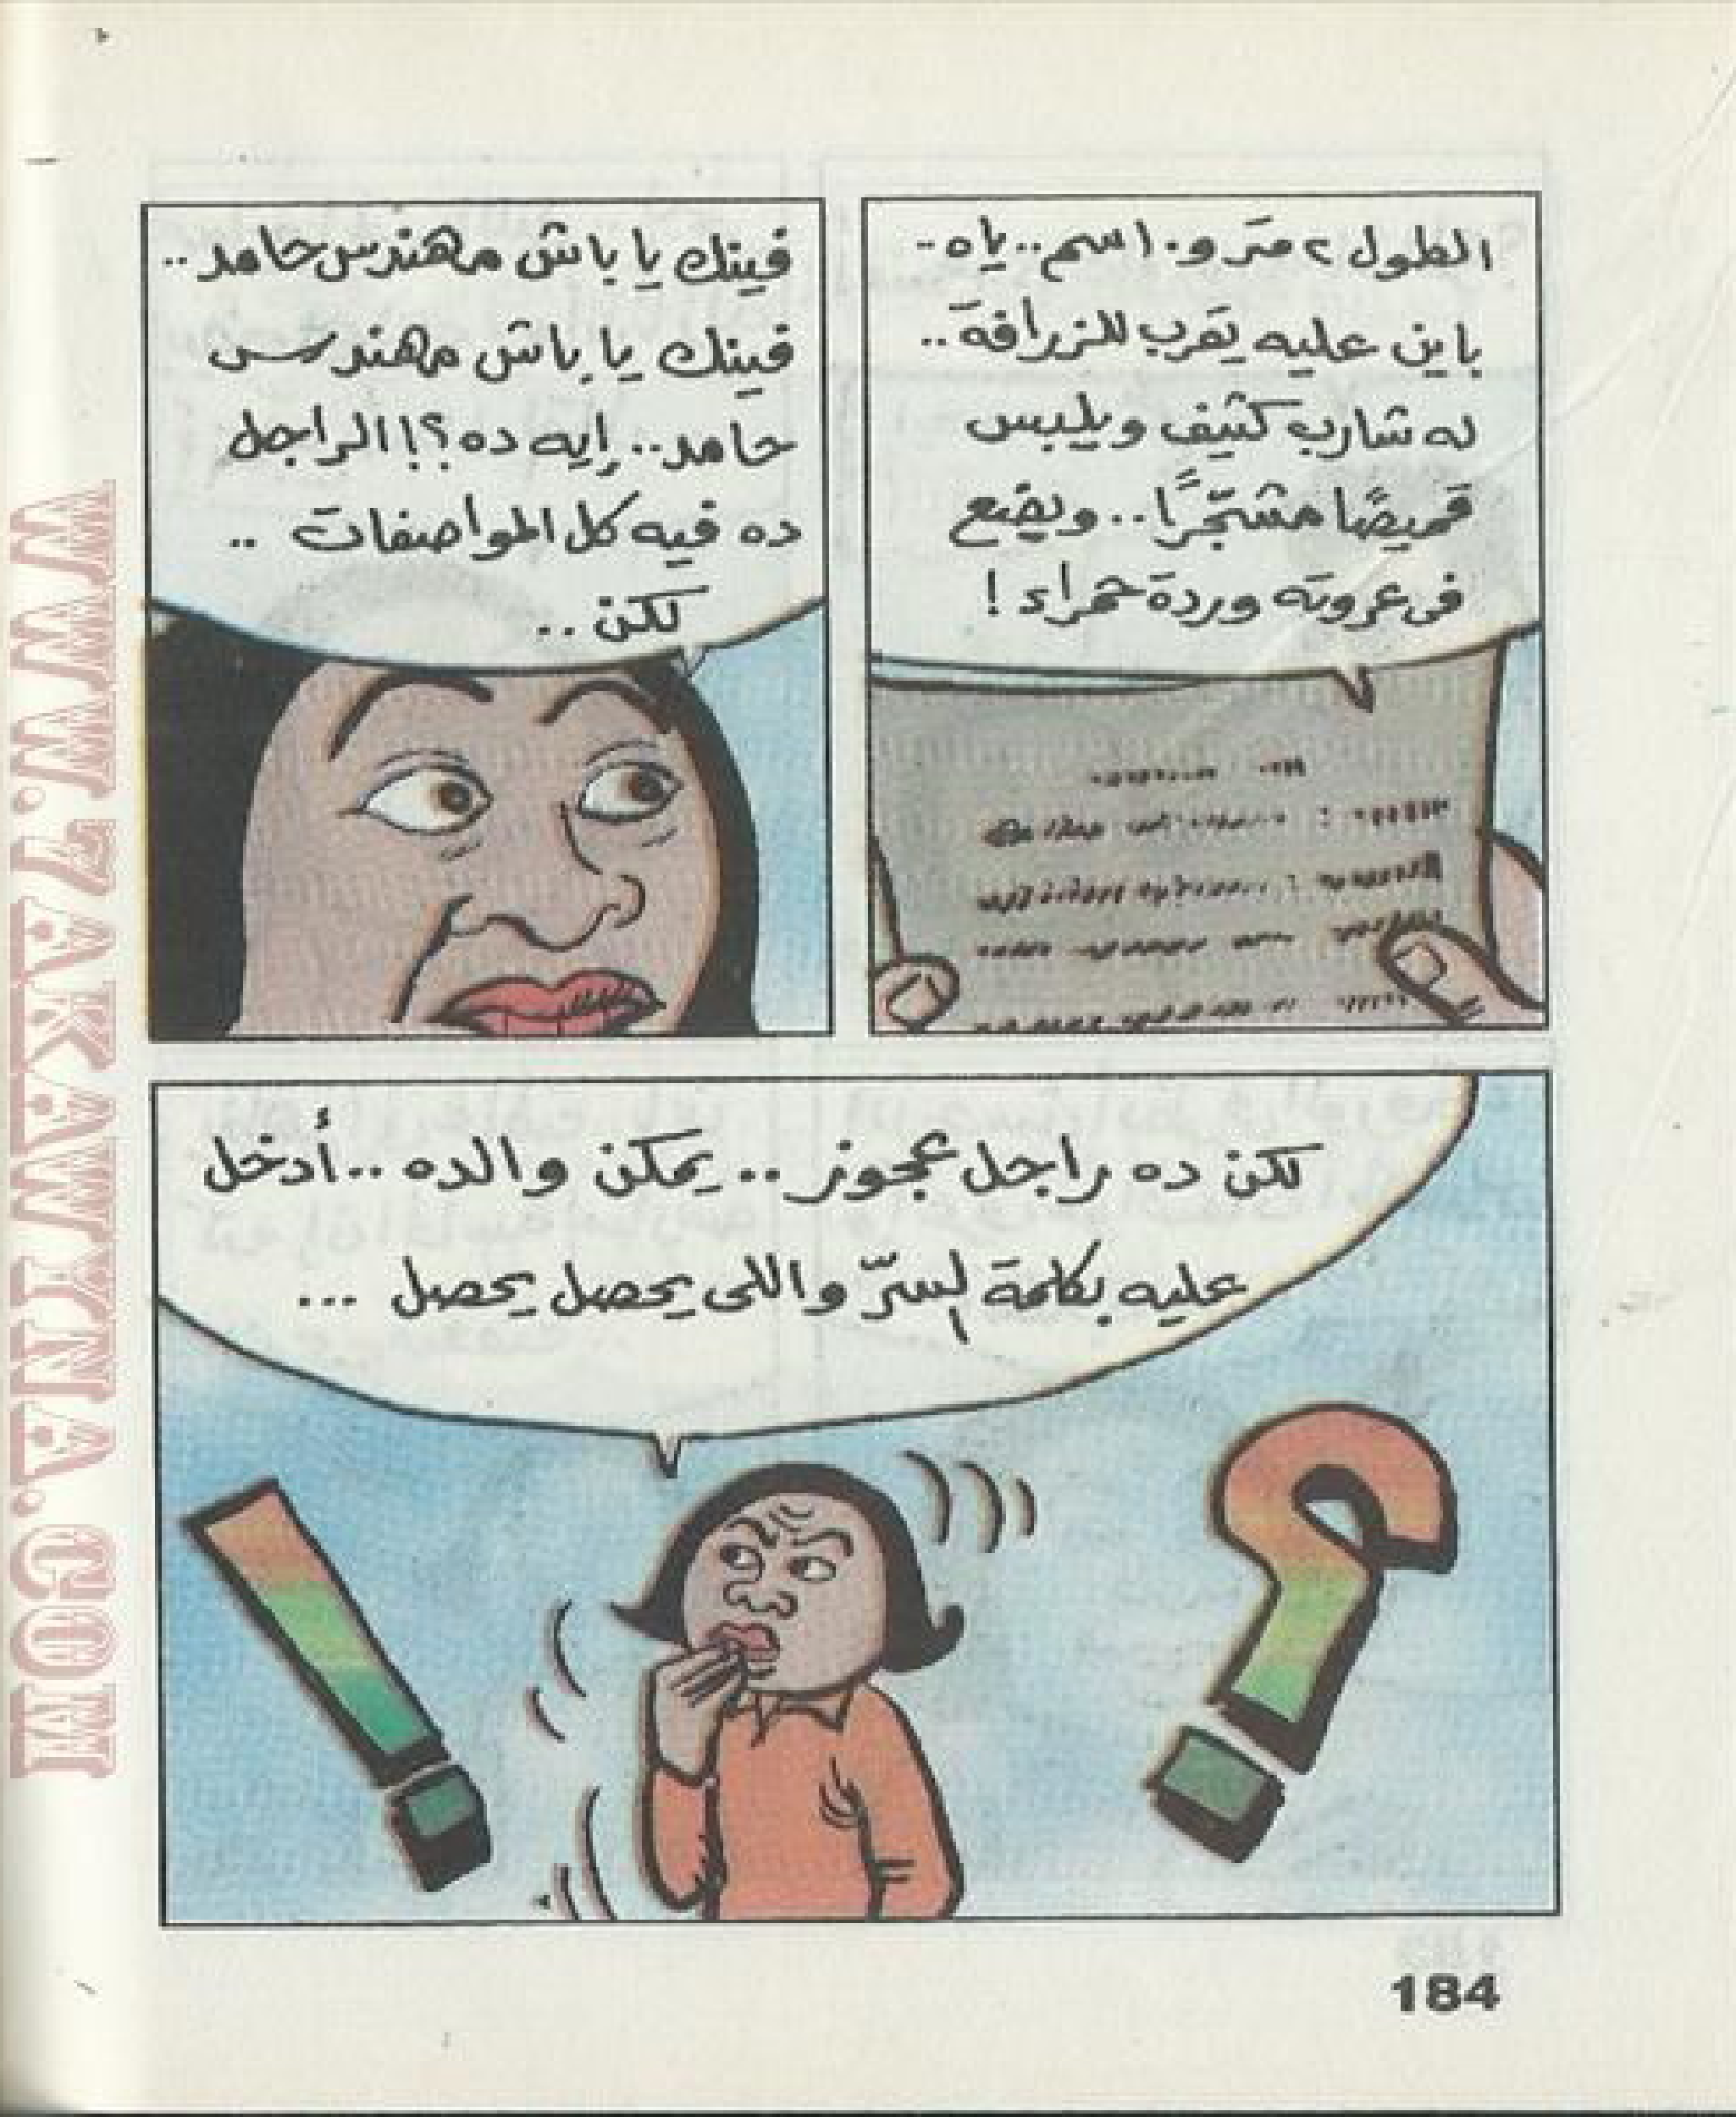 الطول ٢ متر و١٠ سم.. ياه -
باين عليه يقرب للزرافة..
له شارب كثيف ويلبس
قميصًا مشجّرًا.. ويضع
فى عروته وردة حمراء !
فينك يا باش مهندس حامد..
فينك يا باش مهندس
حامد.. إيه ده ؟! الراجل
ده فيه كل المواصفات ..
لكن ..
لكن ده راجل عجوز .. يمكن والده .. أدخل
عليه بكلمة السرّ واللى يحصل يحصل ...
184
WWW.7AKAWITNA.COM